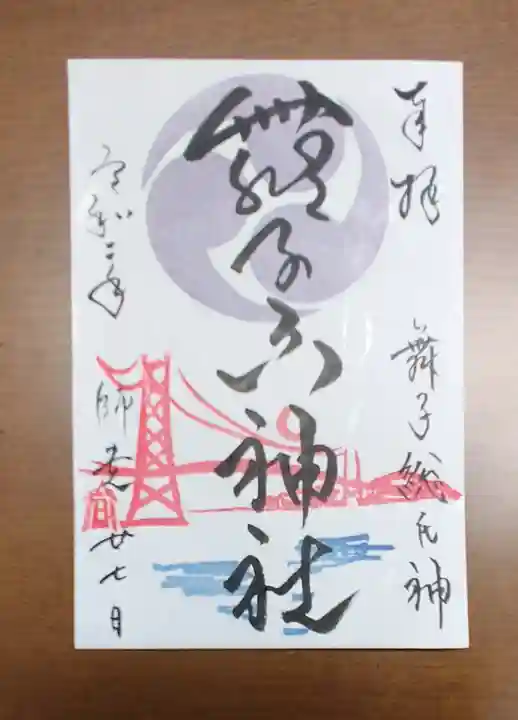 奉拝
舞子総氏神
舞子六神社
令和二年 師走廿七日